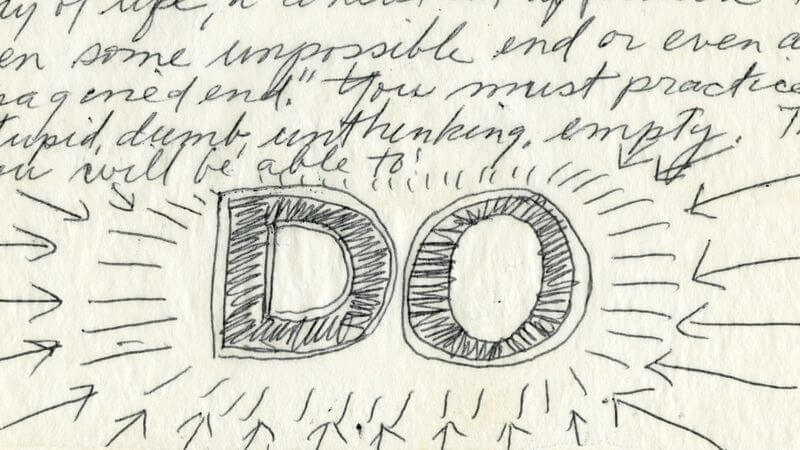 of life," a
en some impossible end or even a
magined end." You must practice
tupid, dumb, unthinking, empty. T
ou will be able to:
DO